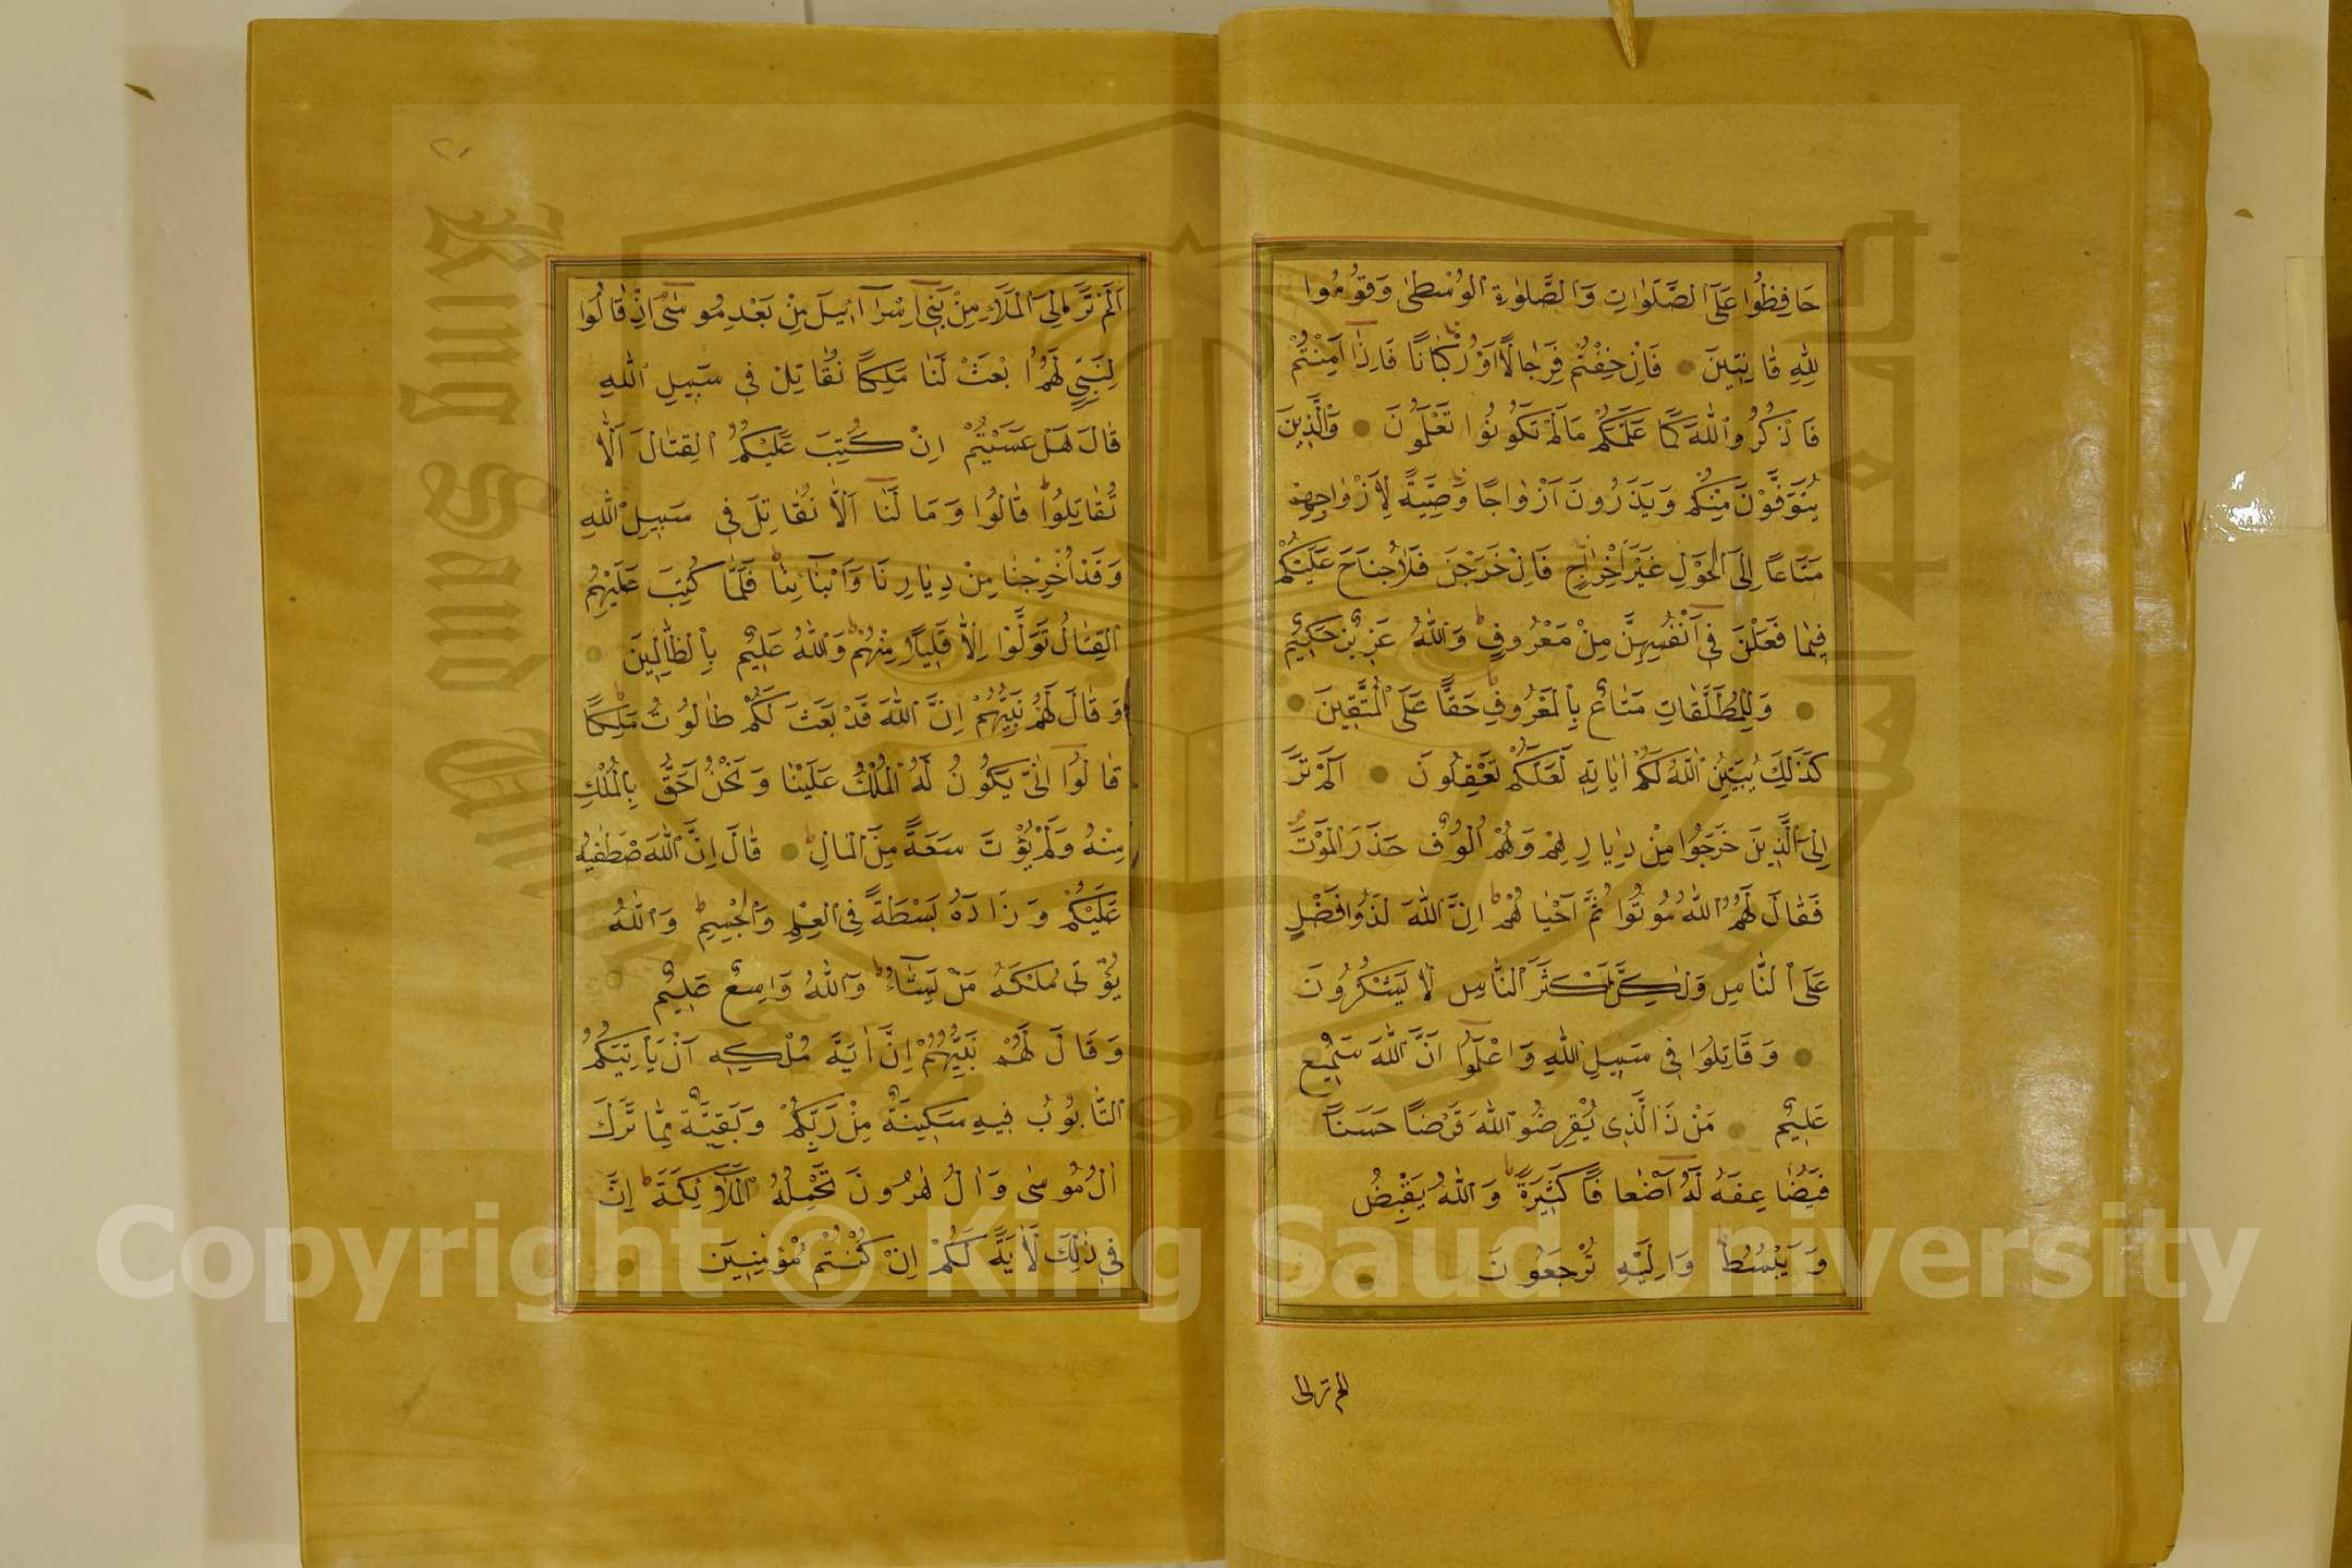 حَافِظُوا عَلَى ٱلصَّلَوَاتِ وَٱلصَّلٰوةِ ٱلْوُسْطٰى وَقُومُوا
لِلّٰهِ قَانِتِينَ ● فَاِنْ خِفْتُمْ فَرِجَالًا اَوْ رُكْبَانًا فَاِذَا اَمِنْتُمْ
فَاذْكُرُوا ٱللّٰهَ كَمَا عَلَّمَكُمْ مَا لَمْ تَكُونُوا تَعْلَمُونَ ● وَٱلَّذِينَ
يُتَوَفَّوْنَ مِنْكُمْ وَيَذَرُونَ اَزْوَاجًا وَصِيَّةً لِاَزْوَاجِهِمْ
مَتَاعًا اِلَى ٱلْحَوْلِ غَيْرَ اِخْرَاجٍ فَاِنْ خَرَجْنَ فَلَا جُنَاحَ عَلَيْكُمْ
فِيمَا فَعَلْنَ فِى اَنْفُسِهِنَّ مِنْ مَعْرُوفٍ وَٱللّٰهُ عَزِيزٌ حَكِيمٌ
● وَلِلْمُطَلَّقَاتِ مَتَاعٌ بِٱلْمَعْرُوفِ حَقًّا عَلَى ٱلْمُتَّقِينَ ●
كَذٰلِكَ يُبَيِّنُ ٱللّٰهُ لَكُمْ اٰيَاتِهِ لَعَلَّكُمْ تَعْقِلُونَ ● اَلَمْ تَرَ
اِلَى ٱلَّذِينَ خَرَجُوا مِنْ دِيَارِهِمْ وَهُمْ اُلُوفٌ حَذَرَ ٱلْمَوْتِ
فَقَالَ لَهُمُ ٱللّٰهُ مُوتُوا ثُمَّ اَحْيَاهُمْ اِنَّ ٱللّٰهَ لَذُو فَضْلٍ
عَلَى ٱلنَّاسِ وَلٰكِنَّ اَكْثَرَ ٱلنَّاسِ لَا يَشْكُرُونَ
● وَقَاتِلُوا فِى سَبِيلِ ٱللّٰهِ وَاعْلَمُوا اَنَّ ٱللّٰهَ سَمِيعٌ
عَلِيمٌ ● مَنْ ذَا ٱلَّذِى يُقْرِضُ ٱللّٰهَ قَرْضًا حَسَنًا
فَيُضَاعِفَهُ لَهُ اَضْعَافًا كَثِيرَةً وَٱللّٰهُ يَقْبِضُ
وَيَبْسُطُ وَاِلَيْهِ تُرْجَعُونَ ●
الم تر الى
٢١
اَلَمْ تَرَ اِلَى ٱلْمَلَاِ مِنْ بَنِى اِسْرَآئِيلَ مِنْ بَعْدِ مُوسٰى اِذْ قَالُوا
لِنَبِىٍّ لَهُمُ ابْعَثْ لَنَا مَلِكًا نُقَاتِلْ فِى سَبِيلِ ٱللّٰهِ
قَالَ هَلْ عَسَيْتُمْ اِنْ كُتِبَ عَلَيْكُمُ ٱلْقِتَالُ اَلَّا
تُقَاتِلُوا قَالُوا وَمَا لَنَا اَلَّا نُقَاتِلَ فِى سَبِيلِ ٱللّٰهِ
وَقَدْ اُخْرِجْنَا مِنْ دِيَارِنَا وَاَبْنَائِنَا فَلَمَّا كُتِبَ عَلَيْهِمُ
ٱلْقِتَالُ تَوَلَّوْا اِلَّا قَلِيلًا مِنْهُمْ وَٱللّٰهُ عَلِيمٌ بِٱلظَّالِمِينَ ●
وَقَالَ لَهُمْ نَبِيُّهُمْ اِنَّ ٱللّٰهَ قَدْ بَعَثَ لَكُمْ طَالُوتَ مَلِكًا
قَالُوا اَنّٰى يَكُونُ لَهُ ٱلْمُلْكُ عَلَيْنَا وَنَحْنُ اَحَقُّ بِٱلْمُلْكِ
مِنْهُ وَلَمْ يُؤْتَ سَعَةً مِنَ ٱلْمَالِ ● قَالَ اِنَّ ٱللّٰهَ صْطَفٰيهُ
عَلَيْكُمْ وَزَادَهُ بَسْطَةً فِى ٱلْعِلْمِ وَٱلْجِسْمِ وَٱللّٰهُ
يُؤْتِى مُلْكَهُ مَنْ يَشَآءُ وَٱللّٰهُ وَاسِعٌ عَلِيمٌ ●
وَقَالَ لَهُمْ نَبِيُّهُمْ اِنَّ اٰيَةَ مُلْكِهِ اَنْ يَأْتِيَكُمُ
ٱلتَّابُوتُ فِيهِ سَكِينَةٌ مِنْ رَبِّكُمْ وَبَقِيَّةٌ مِمَّا تَرَكَ
اٰلُ مُوسٰى وَاٰلُ هٰرُونَ تَحْمِلُهُ ٱلْمَلَائِكَةُ اِنَّ
فِى ذٰلِكَ لَاٰيَةً لَكُمْ اِنْ كُنْتُمْ مُؤْمِنِينَ ●
King Saud University
1957
Copyright © King Saud University